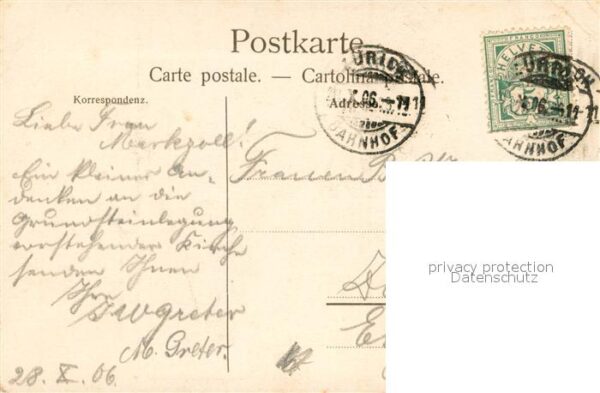 Postkarte
Carte postale. — Cartolina postale.
Korrespondenz.
Adresse
ZÜRICH
X.06.-11
BAHNHOF
HELVETIA
FRANCO
ZÜRICH
X.06.-11
BAHNHOF
Liebe Frau
Markzoll!
Ein kleines An-
denken an die
Grundsteinlegung
vorstehender Kirche
senden Ihnen
Ihre
Greter
M. Greter.
28. X. 06.
Frauen
privacy protection
Datenschutz